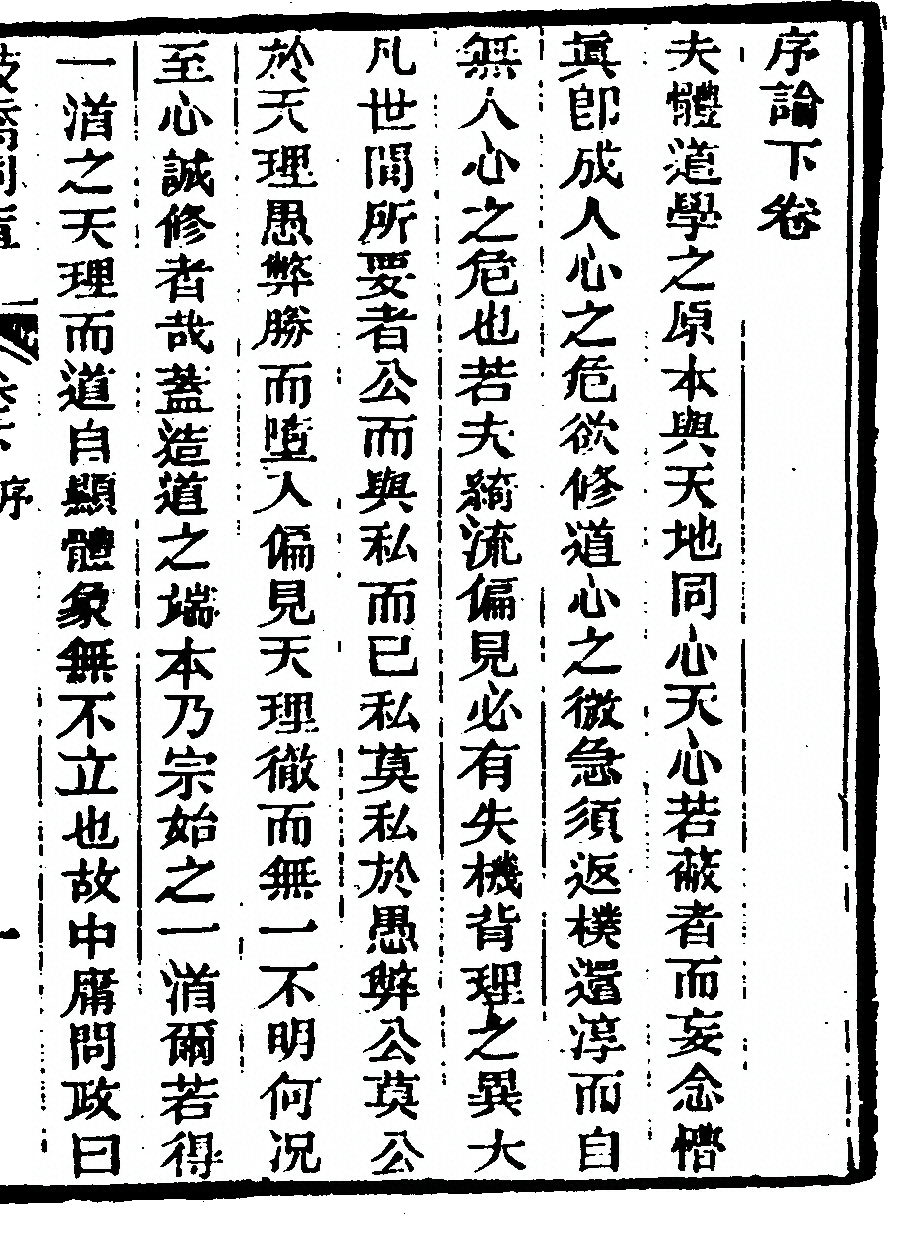 序論下卷
夫體道學之原本與天地同心天心若蔽者而妄念懵
眞卽成人心之危欲修道心之微急須返樸還淳而自
無人心之危也若夫綺流偏見必有失機背理之異大
凡世間所要者公而與私而已私莫私於愚弊公莫公
於天理愚弊勝而墮入偏見天理徹而無一不明何况
至心誠修者哉蓋造道之端本乃宗始之一湝爾若得
一湝之天理而道自顯體象無不立也故中庸問政曰
序
一